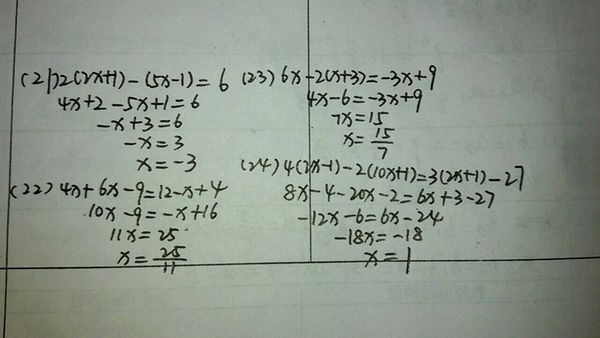 (21) 2(2x+1)-(5x-1)=6
4x+2-5x+1=6
-x+3=6
-x=3
x=-3
(22) 4x+6x-9=12-x+4
10x-9=-x+16
11x=25
x=25/11
(23) 6x-2(x+3)=-3x+9
4x-6=-3x+9
7x=15
x=15/7
(24) 4(2x-1)-2(10x+1)=3(2x+1)-27
8x-4-20x-2=6x+3-27
-12x-6=6x-24
-18x=-18
x=1